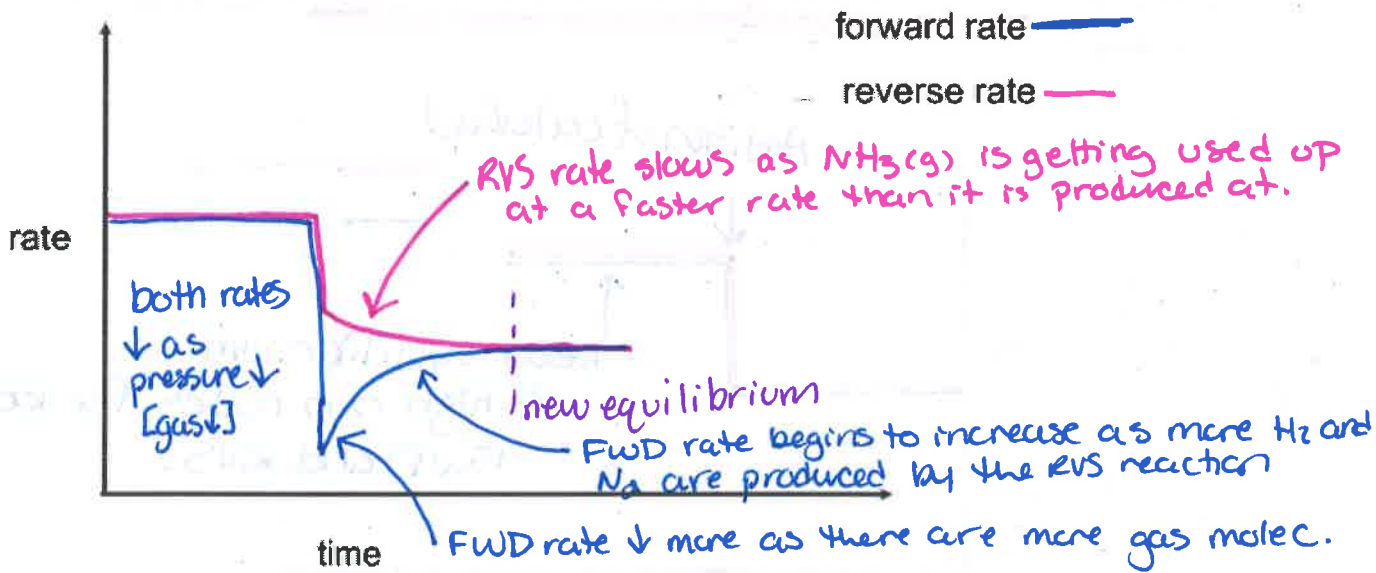 forward rate
reverse rate
RVS rate slows as NH3(g) is getting used up
at a faster rate than it is produced at.
rate
both rates
↓ as
pressure ↓
[gas↓]
new equilibrium
FWD rate begins to increase as more H2 and
N2 are produced by the RVS reaction
FWD rate ↓ more as there are more gas molec.
time